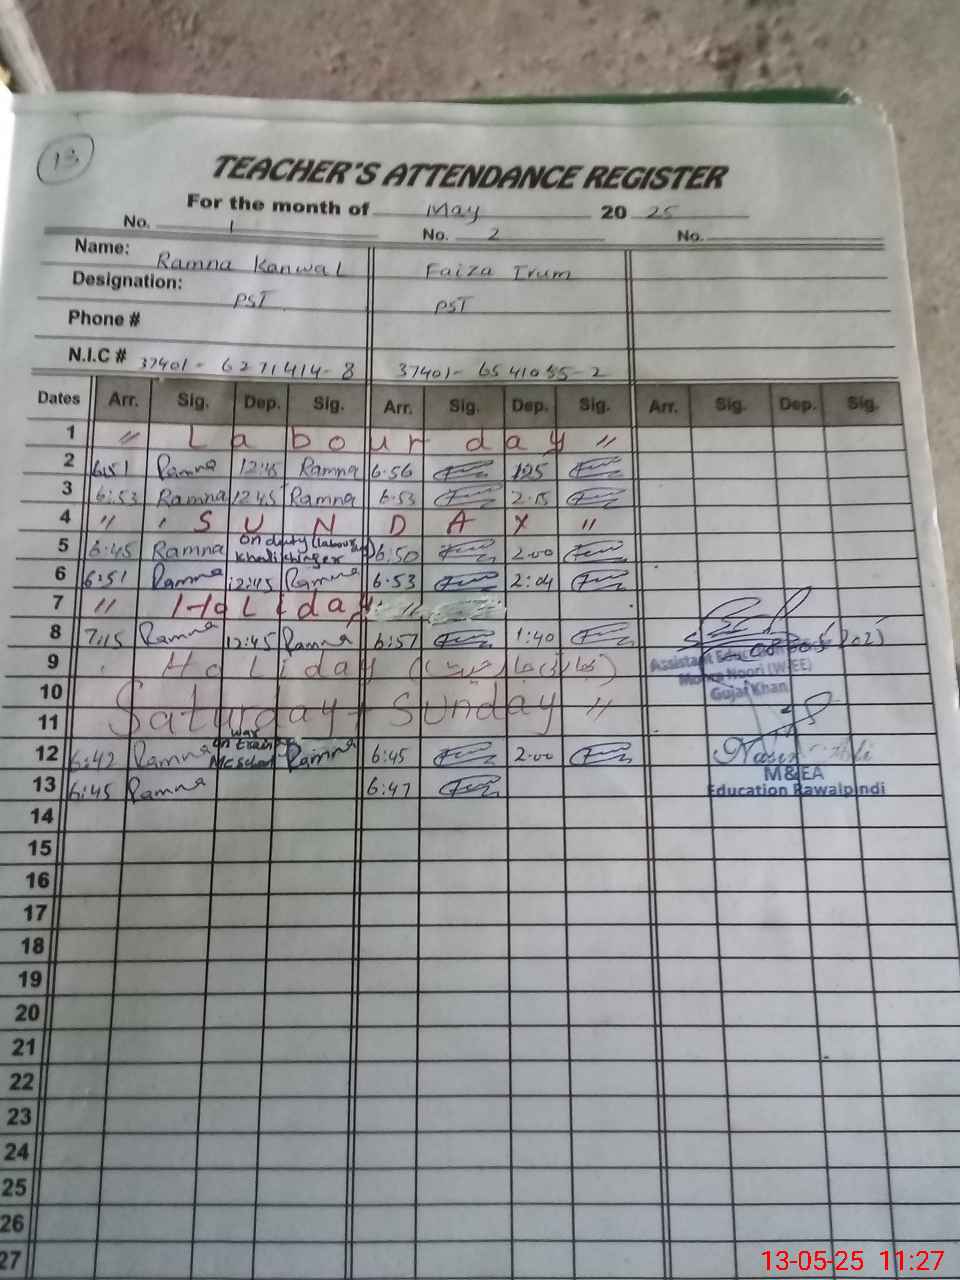 13
TEACHER'S ATTENDANCE REGISTER
For the month of May 20 25
No. 1 No. 2 No.
Name: Ramna Kanwal Faiza Irum
Designation: PST PST
Phone #
N.I.C # 37401-6271414-8 37401-6541055-2
Dates Arr. Sig. Dep. Sig. Arr. Sig. Dep. Sig. Arr. Sig. Dep. Sig.
1 " Labour day "
2 6:51 Ramna 12:45 Ramna 6:56 1:25
3 6:53 Ramna 12:45 Ramna 6:53 2:15
4 " " SUNDAY "
5 6:45 Ramna on duty (labour 6:50 2:00
6 6:51 Ramna 12:45 Ramna 6:53 2:04
7 " Holiday "
8 7:15 Ramna 12:45 Ramna 6:57 1:40
9 Holiday
Assistant Education
Mohra Noori (W-EE)
Gujar Khan
10
Saturday + Sunday "
11
12 6:42 Ramna was on training Ramna 6:45 2:00
M&EA
Education Rawalpindi
13 6:45 Ramna 6:47
14
15
16
17
18
19
20
21
22
23
24
25
26
27
13-05-25 11:27